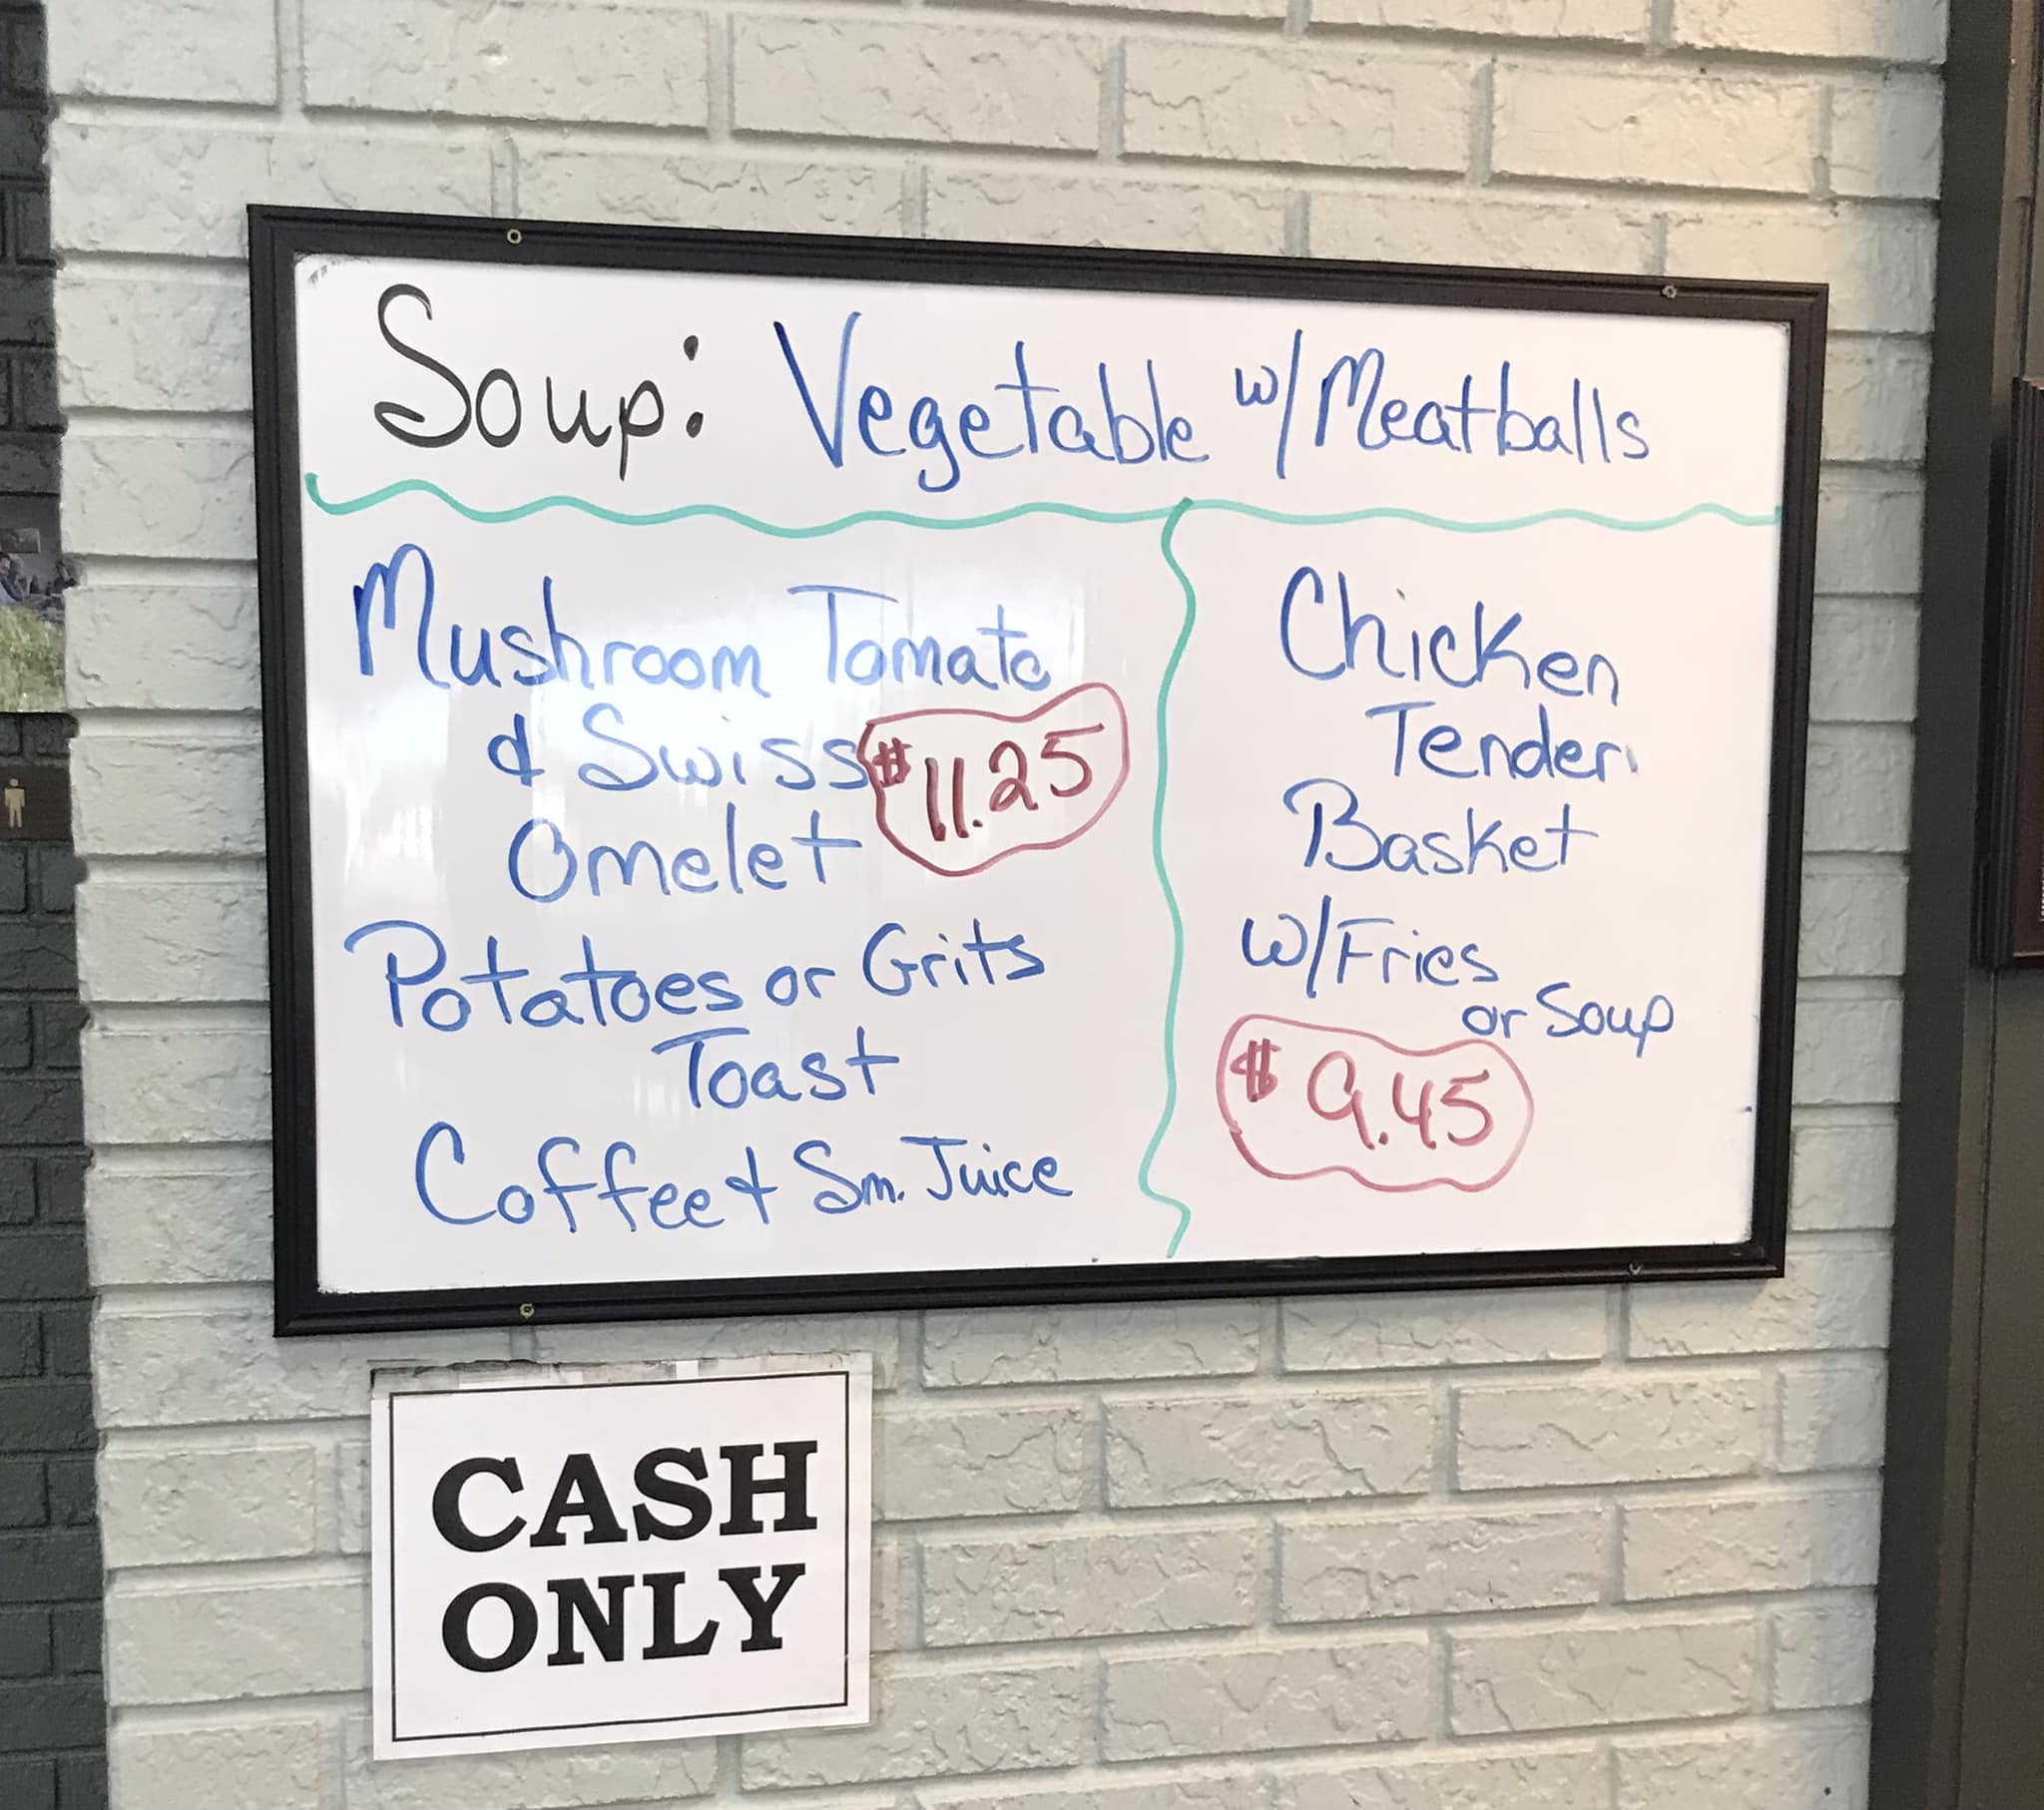 Soup: Vegetable w/Meatballs
Mushroom Tomato
& Swiss $11.25
Omelet
Potatoes or Grits
Toast
Coffee & Sm. Juice
Chicken
Tender
Basket
w/Fries
or Soup
$9.45
CASH
ONLY